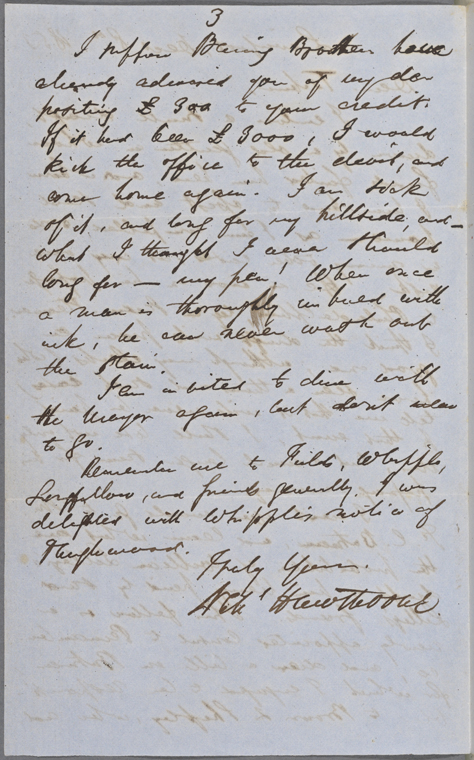 3
I suppose Baring Brothers have
already advised you of my de-
positing £ 300 to your credit.
If it had been £ 3000, I would
kick the office to the devil, and
come home again. I am sick
of it, and long for my hillside, and
what I thought I never should
long for — my pen! When once
a man is thoroughly imbued with
ink, he can never wash out
the stain.
I am invited to dine with
the Mayor again, but don't mean
to go.
Remember me to Fields, Whipple,
Longfellow, and friends generally. I was
delighted with Whipple's notice of
Tanglewood.
Truly Yours.
Nath' Hawthorne.